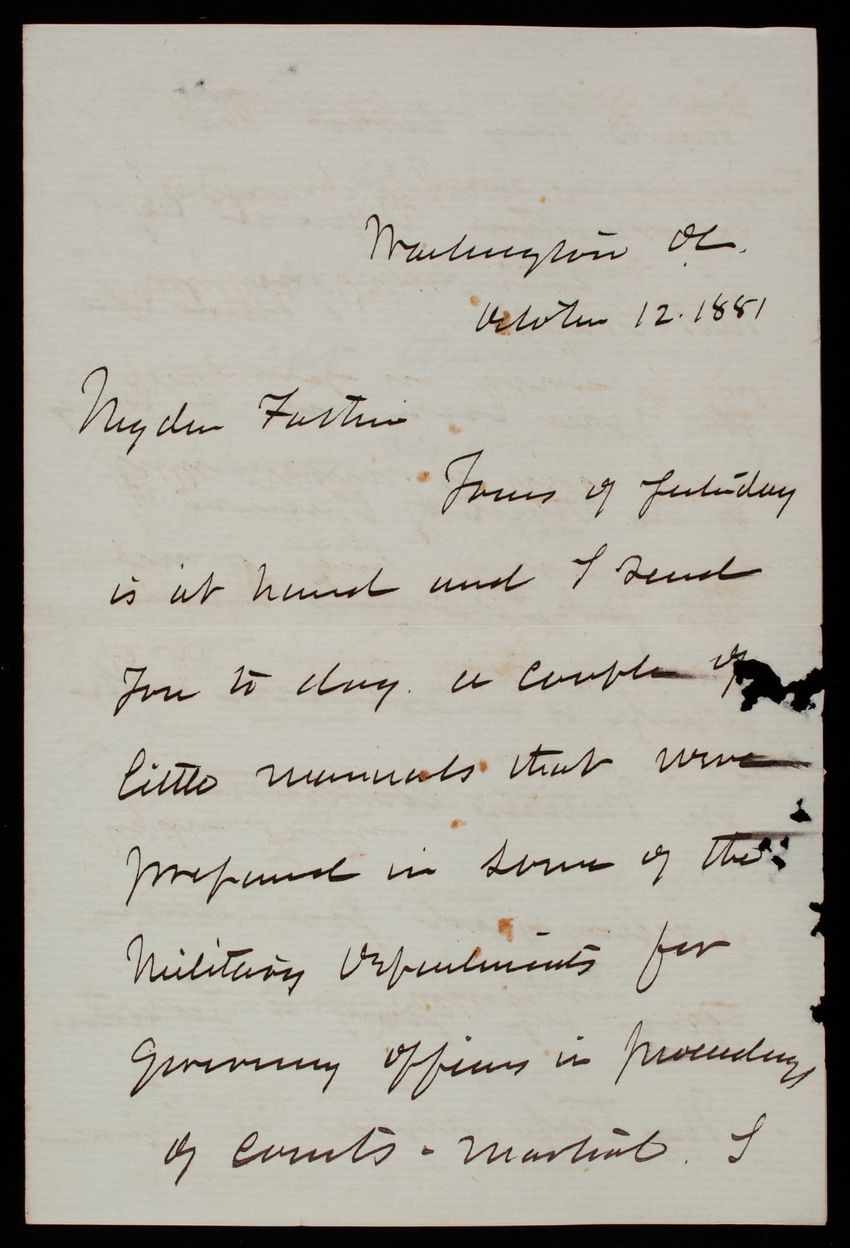 Washington DC.
October 12. 1881
My dear
Yours of yesterday
is at hand and I send
you to day. a couple of
little manuals that were
prepared in some of the
Military Departments for
governing officers in proceedings
of Courts-Martial. I